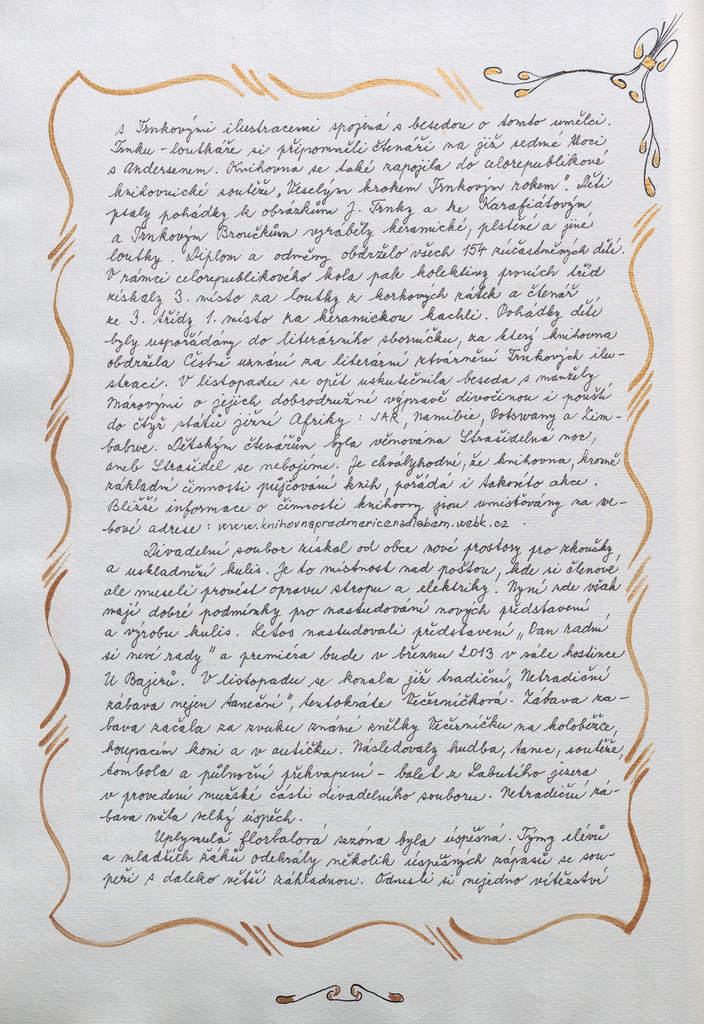 s Trnkovými ilustracemi spojená s besedou o tomto umělci.
Trnku - loutkáře si připomněli čtenáři na již sedmé Noci
s Andersenem. Knihovna se také zapojila do celorepublikové
knihovnické soutěže „Veselým krokem Trnkovým rokem“. Děti
psaly pohádky k obrázkům J. Trnky a ke Karafiátovým
a Trnkovým Broučkům vyráběly keramické, plstěné a jiné
loutky. Diplom a odměny obdrželo všech 154 zúčastněných dětí.
V rámci celorepublikového kola pak kolektivy prvních tříd
získaly 3. místo za loutky z korkových zátek a čtenář
ze 3. třídy 1. místo za keramickou kachli. Pohádky dětí
byly uspořádány do literárního sborníčku, za který knihovna
obdržela Čestné uznání za literární ztvárnění Trnkových ilu-
strací. V listopadu se opět uskutečnila beseda s manžely
Márovými o jejich dobrodružné výpravě divočinou i pouští
do čtyř států jižní Afriky: JAR, Namibie, Botswany a Zim-
babwe. Dětským čtenářům byla věnována Strašidelná noc,
aneb Strašidel se nebojíme. Je chvályhodné, že knihovna, kromě
základní činnosti půjčování knih, pořádá i takovéto akce.
Bližší informace o činnosti knihovny jsou umisťovány na we-
bové adrese: www.knihovnapredmericenadlabem.webk.cz.
Divadelní soubor získal od obce nové prostory pro zkoušky
a uskladnění kulis. Je to místnost nad poštou, kde si členové
ale museli provést opravu stropu a elektriky. Nyní zde však
mají dobré podmínky pro nastudování nových představení
a výrobu kulis. Letos nastudovali představení „Pan radní
si neví rady“ a premiéra bude v březnu 2013 v sále hostince
U Bajerů. V listopadu se konala již tradiční „Netradiční
zábava nejen taneční“, tentokráte Večerníčková. Zábava za-
bava začala za zvuku známé znělky Večerníčku na koloběžce,
houpacím koni a v autíčku. Následovaly hudba, tanec, soutěže,
tombola a půlnoční překvapení - balet z Labutího jezera
v provedení mužské části divadelního souboru. Netradiční zá-
bava měla velký úspěch.
Uplynulá florbalová sezóna byla úspěšná. Týmy elévů
a mladších žáků odehrály několik úspěšných zápasů se sou-
peři s daleko větší základnou. Odnesli si nejedno vítězství